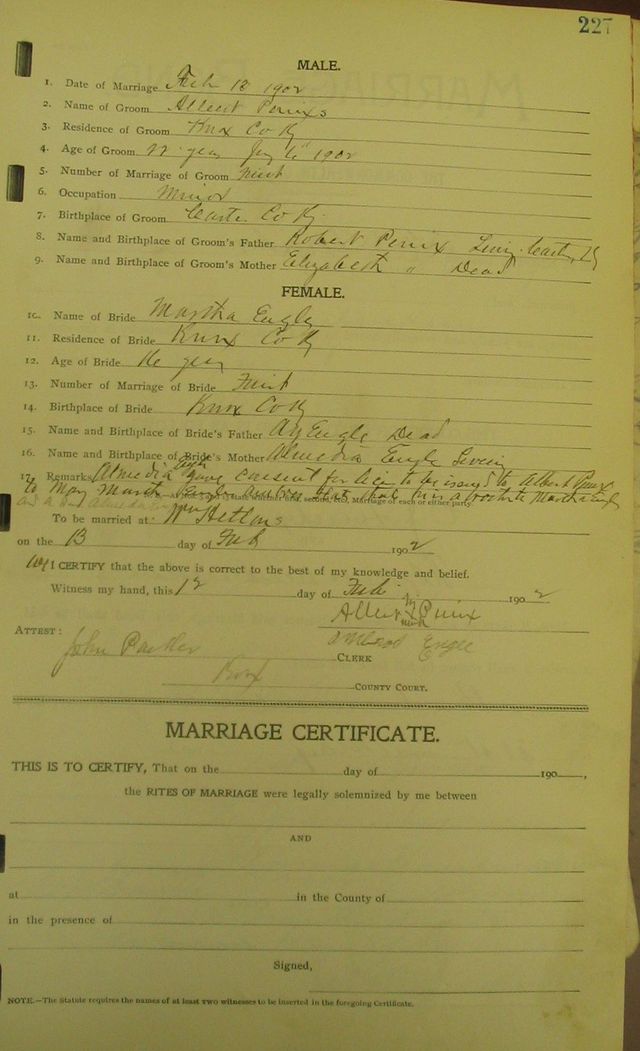 227
MALE.
1. Date of Marriage Feb 13 1902
2. Name of Groom Albert Penixs
3. Residence of Groom Knox Co Ky
4. Age of Groom 22 year 1902
5. Number of Marriage of Groom First
6. Occupation Minor
7. Birthplace of Groom Carter Co Ky.
8. Name and Birthplace of Groom's Father Robert Penix Living Carter, Ky
9. Name and Birthplace of Groom's Mother Elizabeth " Dead
FEMALE.
10. Name of Bride Martha Engle
11. Residence of Bride Knox Co Ky
12. Age of Bride 16 year
13. Number of Marriage of Bride First
14. Birthplace of Bride Knox Co Ky
15. Name and Birthplace of Bride's Father Engle Dead
16. Name and Birthplace of Bride's Mother Almedia Engle Living
17. Remarks Almedia Engle gave consent for to be issued to Albert Penix
to Mary that Martha Engle
To be married at Wm
on the 13 day of Feb 1902
I CERTIFY that the above is correct to the best of my knowledge and belief.
Witness my hand, this 12 day of Feb 1902
Albert Penix
mark
ATTEST: John Parker Engle
CLERK
Knox COUNTY COURT.
MARRIAGE CERTIFICATE.
THIS IS TO CERTIFY, That on the day of 190 ,
the RITES OF MARRIAGE were legally solemnized by me between
AND
at in the County of
in the presence of
Signed,
NOTE.—The Statute requires the names of at least two witnesses to be inserted in the foregoing Certificate.